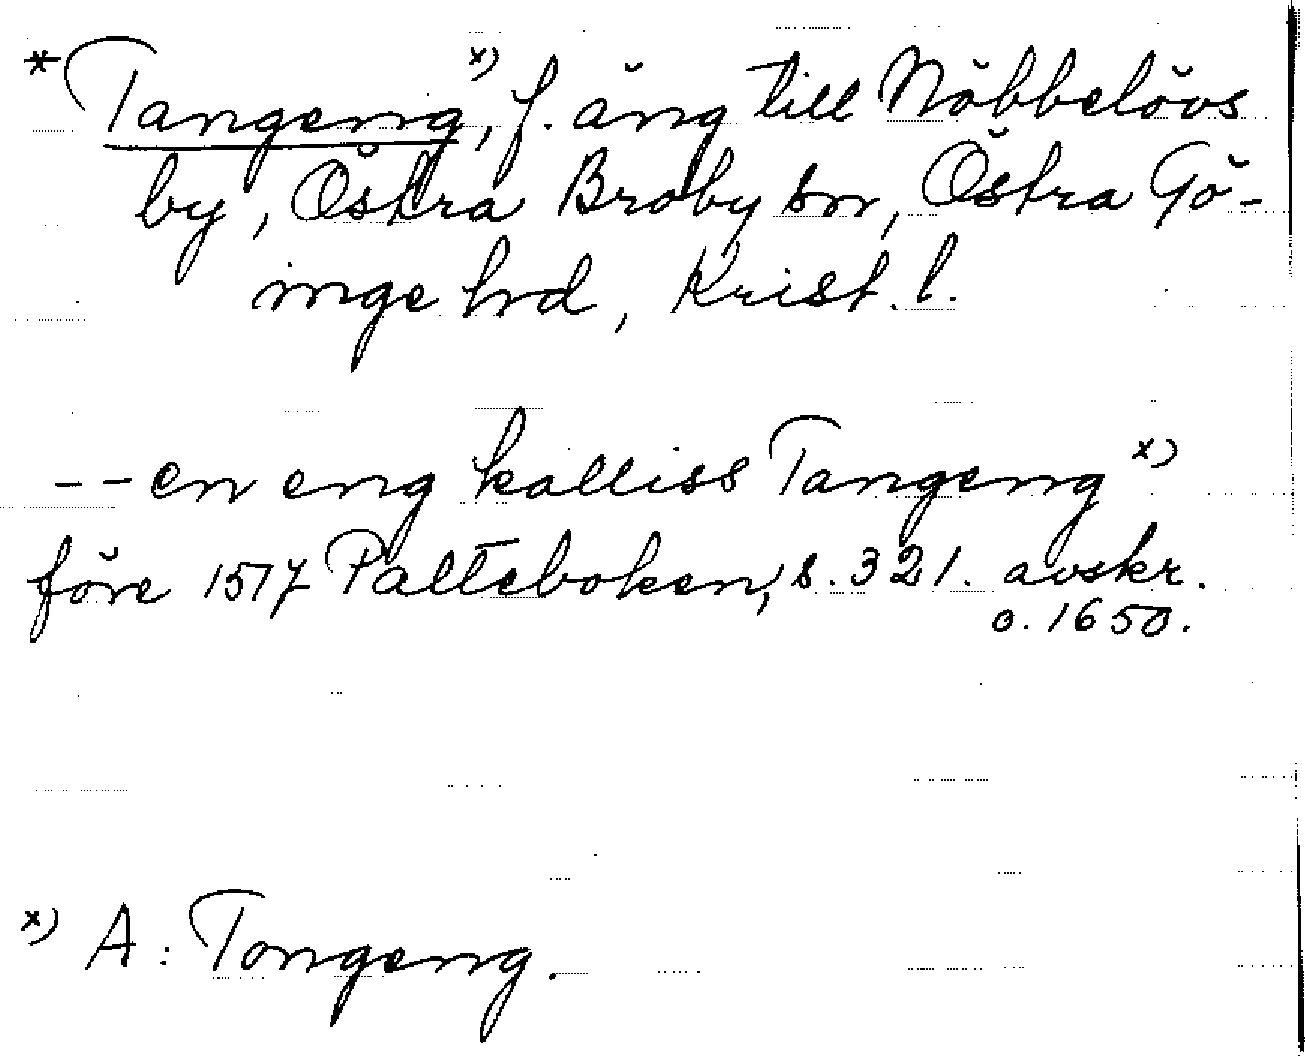 * Tangeng x), f. äng till Nöbbelövs
by, Östra Broby sn, Östra Gö-
inge hd, Krist. l.
-- en eng kalliss Tangeng x)
före 1517 Palteboken, s. 321. avskr.
o. 1650.
x) A: Tongeng.